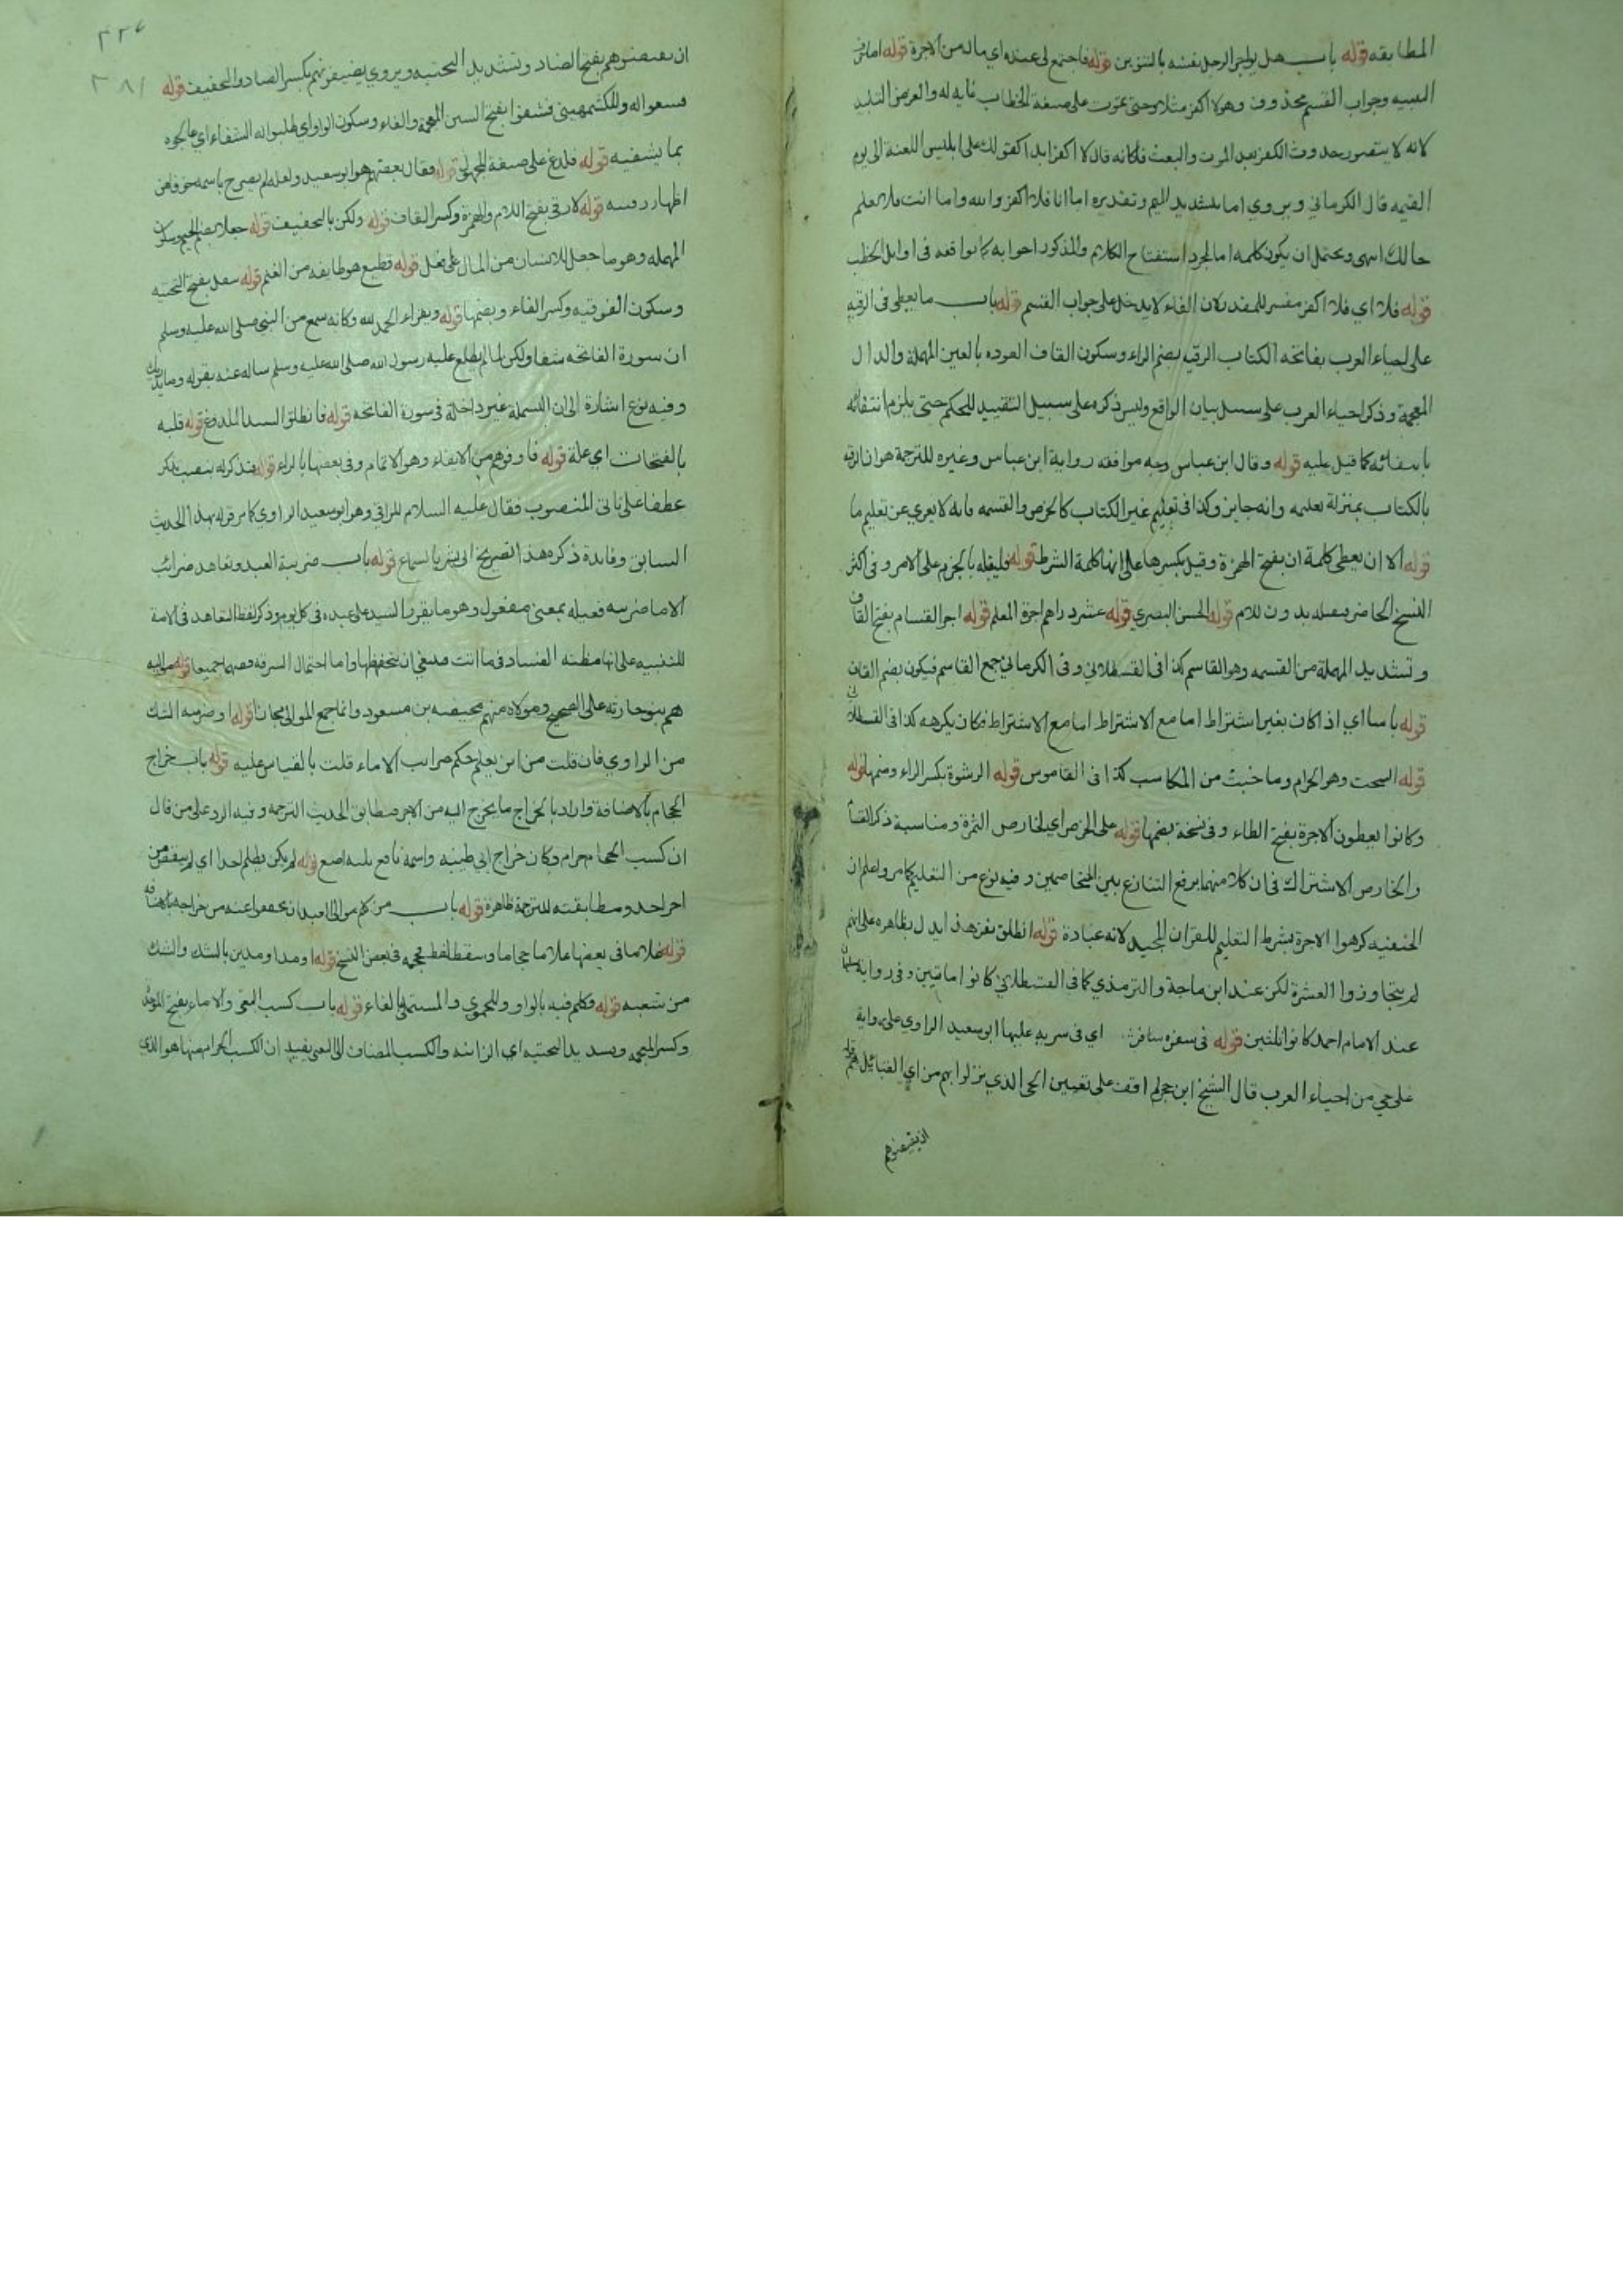 المطابقه قوله باب هل يواجر الرجل نفسه بالتنوين قوله فاجتمع لى عنده اي مال من الاجرة قوله اما فى
البسيه وجواب القسم محذوف وهو لا اكفر مثلا وحتى تموت على صيغة الخطاب غايه له والغرض التابيد
لانه لا يتصور حدوث الكفر بعد الموت والبعث فكانه قال لا اكفر ابدا كقولك على ابليس اللعنة الى يوم
القيمه قال الكرماني ويروي اما بتشديد الميم وتقديره اما انا فلا اكفر والله واما انت فلا نعلم
حالك انتهى ويحتمل ان يكون كلمه اما لمجرد استفتاح الكلام والمذكور احوابه كما تواقعه فى اوايل الخطب
قوله فلا اي فلا اكفر مفسر للمقدر لان الفاء لا يدخل على جواب القسم قوله باب ما يعطى فى الرقيه
على احياء العرب بفاتحه الكتاب الرقيه بضم الراء وسكون القاف العوذه بالعين المهملة والذال
المعجمة وذكر احياء العرب على سبيل بيان الواقع وليس ذكره على سبيل التقييد للحكم حتى يلزم انتفائه
بانتفائه كما قيل عليه قوله وقال ابن عباس وجه موافقه رواية ابن عباس وغيره للترجمة هو ان الرقيه
بالكتاب بمنزلة تعليمه وانه جايز وكذا فى تعليم غير الكتاب كالخرص والقسمه فانه لا يعري عن تعليم ما
قوله الا ان يعطى كلمة ان بفتح الهمزة وقيل بكسرها على انها كلمة الشرط قوله فليقبله بالجزم على الامر وفى اكثر
النسخ الحاضر فيقبله بدون للام قوله الحسن البصري قوله عشرد راهم اجرة المعلم قوله اجر القسام بفتح القاف
وتشديد المهملة من القسمه وهو القاسم كذا فى القسطلاني وفى الكرماني جمع القاسم فيكون بضم القاف
قوله باسا اي اذا كان بغير اشتراط اما مع الاشتراط اما مع الاشتراط فكان يكرهه كذا فى القسطلانى
قوله السحت وهو الحرام وما خبث من المكاسب كذا فى القاموس قوله الرشوة بكسر الراء وضمها قوله
وكانوا يعطون الاجرة بفتح الطاء وفى نسخة بضمها قوله على الخرص اي لخارص الثمرة ومناسبة ذكر القسام
والخارص الاشتراك فى ان كلا منهما يرفع التنازع بين المتخاصمين وفيه نوع من التعليم كما مر واعلم ان
الحنفيه كرهوا الاجرة بشرط التعليم للقران المجيد لانه عبادة قوله انطلق نفر هذا يدل بظاهره على انهم
لم يتجاوزوا العشرة لكن عند ابن ماجة والترمذي كما فى القسطلاني كانوا مايتين وفى رواية سليمان
عند الامام احمد كانوا ثلثين قوله فى سفره سافر اي فى سريه عليها ابو سعيد الراوي على رواية
على حي من احياء العرب قال الشيخ ابن حجر لم اقف على تعيين الحى الذي نزلوا بهم من اي القبائل هم قوله
ان يضيفوهم
ان يضيفوهم بفتح الضاد وتشديد التحتيه ويروي يضيفونهم بكسر الضاد والتخفيف قوله
فسعوا له وللكشميهينى فشفوا بفتح السين المعجمة والفاء وسكون الواو اي طلبوا له الشفاء اي عالجوه
بما يشفيه قوله فلدغ على صيغة المجهول قوله فقال بعضهم هو ابو سعيد ولعله لم يصرح باسمه خوفا من
اظهار نفسه قوله لارقى بفتح اللام والهمزة وكسر القاف قوله ولكن بالتخفيف قوله جعلا بضم الجيم وسكون
المهمله وهو ما جعل للانسان من المال على فعل قوله قطيع هو طايفه من الغنم قوله يتفل بفتح التحتيه
وسكون الفوقيه وكسر الفاء وبضمها قوله ويقراء الحمد لله وكانه سمع من النبى صلى الله عليه وسلم
ان سورة الفاتحه شفا ولكن لما لم يطلع عليه رسول الله صلى الله عليه وسلم ساله عنه بقوله وما يدريك
وفيه نوع اشارة الى ان البسملة غير داخلة فى سورة الفاتحه قوله فانطلق السيد الملدوغ قوله قلبه
بالفتحات اي علة قوله فاوفوهم من الايفاء وهو الاتمام وفى بعضها بالراء قوله فنذكر له بنصب نذكر
عطفا على ناتى المنصوب فقال عليه السلام للراقى وهو ابو سعيد الراوي كما مر قوله بهذا الحديث
السابق وفايدة ذكره هذا التصريح الى بشر بالسماع قوله باب ضريبة العبد وتعاهد ضرائب
الاماء ضريبه فعيله بمعنى مفعول وهو ما يقرر السيد على عبده فى كل يوم وذكر لفظ التعاهد فى الامة
للتنبيه على انها مظنة الفساد فى ما اتت فينبغى ان يتحفظها واما احتمال السرقة ففيهما جميعا قوله مواليه
هم بنو حارثه على الصحيح ومولاه منهم محيصه بن مسعود وانما جمع الموالى مجازا قوله او ضريبه الشك
من الراوي فان قلت من اين يعلم حكم ضرائب الاماء قلت بالقياس عليه قوله باب خراج
الحجام بالاضافة واراد بالخراج ما يخرج اليه من الاجر مطابق الحديث الترجمه وفيه الرد على من قال
ان كسب الحجام حرام وكان خراج ابى طيبه واسمه نافع ثلثه اصع قوله لم يكن يظلم احدا اي لم ينقص من
اجر احد ومطابقته للترجمة ظاهرة قوله باب من كلم موالى العبد ان يخففوا عنه من خراجه بالاضافه
قوله غلاما فى بعضها غلاما حجاما وسقط لفظ حجمه فى بعض النسخ قوله او مدا ومدين بالشك والشك
من شعبه قوله فكلم فيه بالواو وللحموي والمستملى بالفاء قوله باب كسب البغى والاماء بفتح الموحدة
وكسر المعجمه وبسديد التحتيه اي الزانيه والكسب المضاف الى البغى يفيد ان الكسب الحرام منها هو الذي